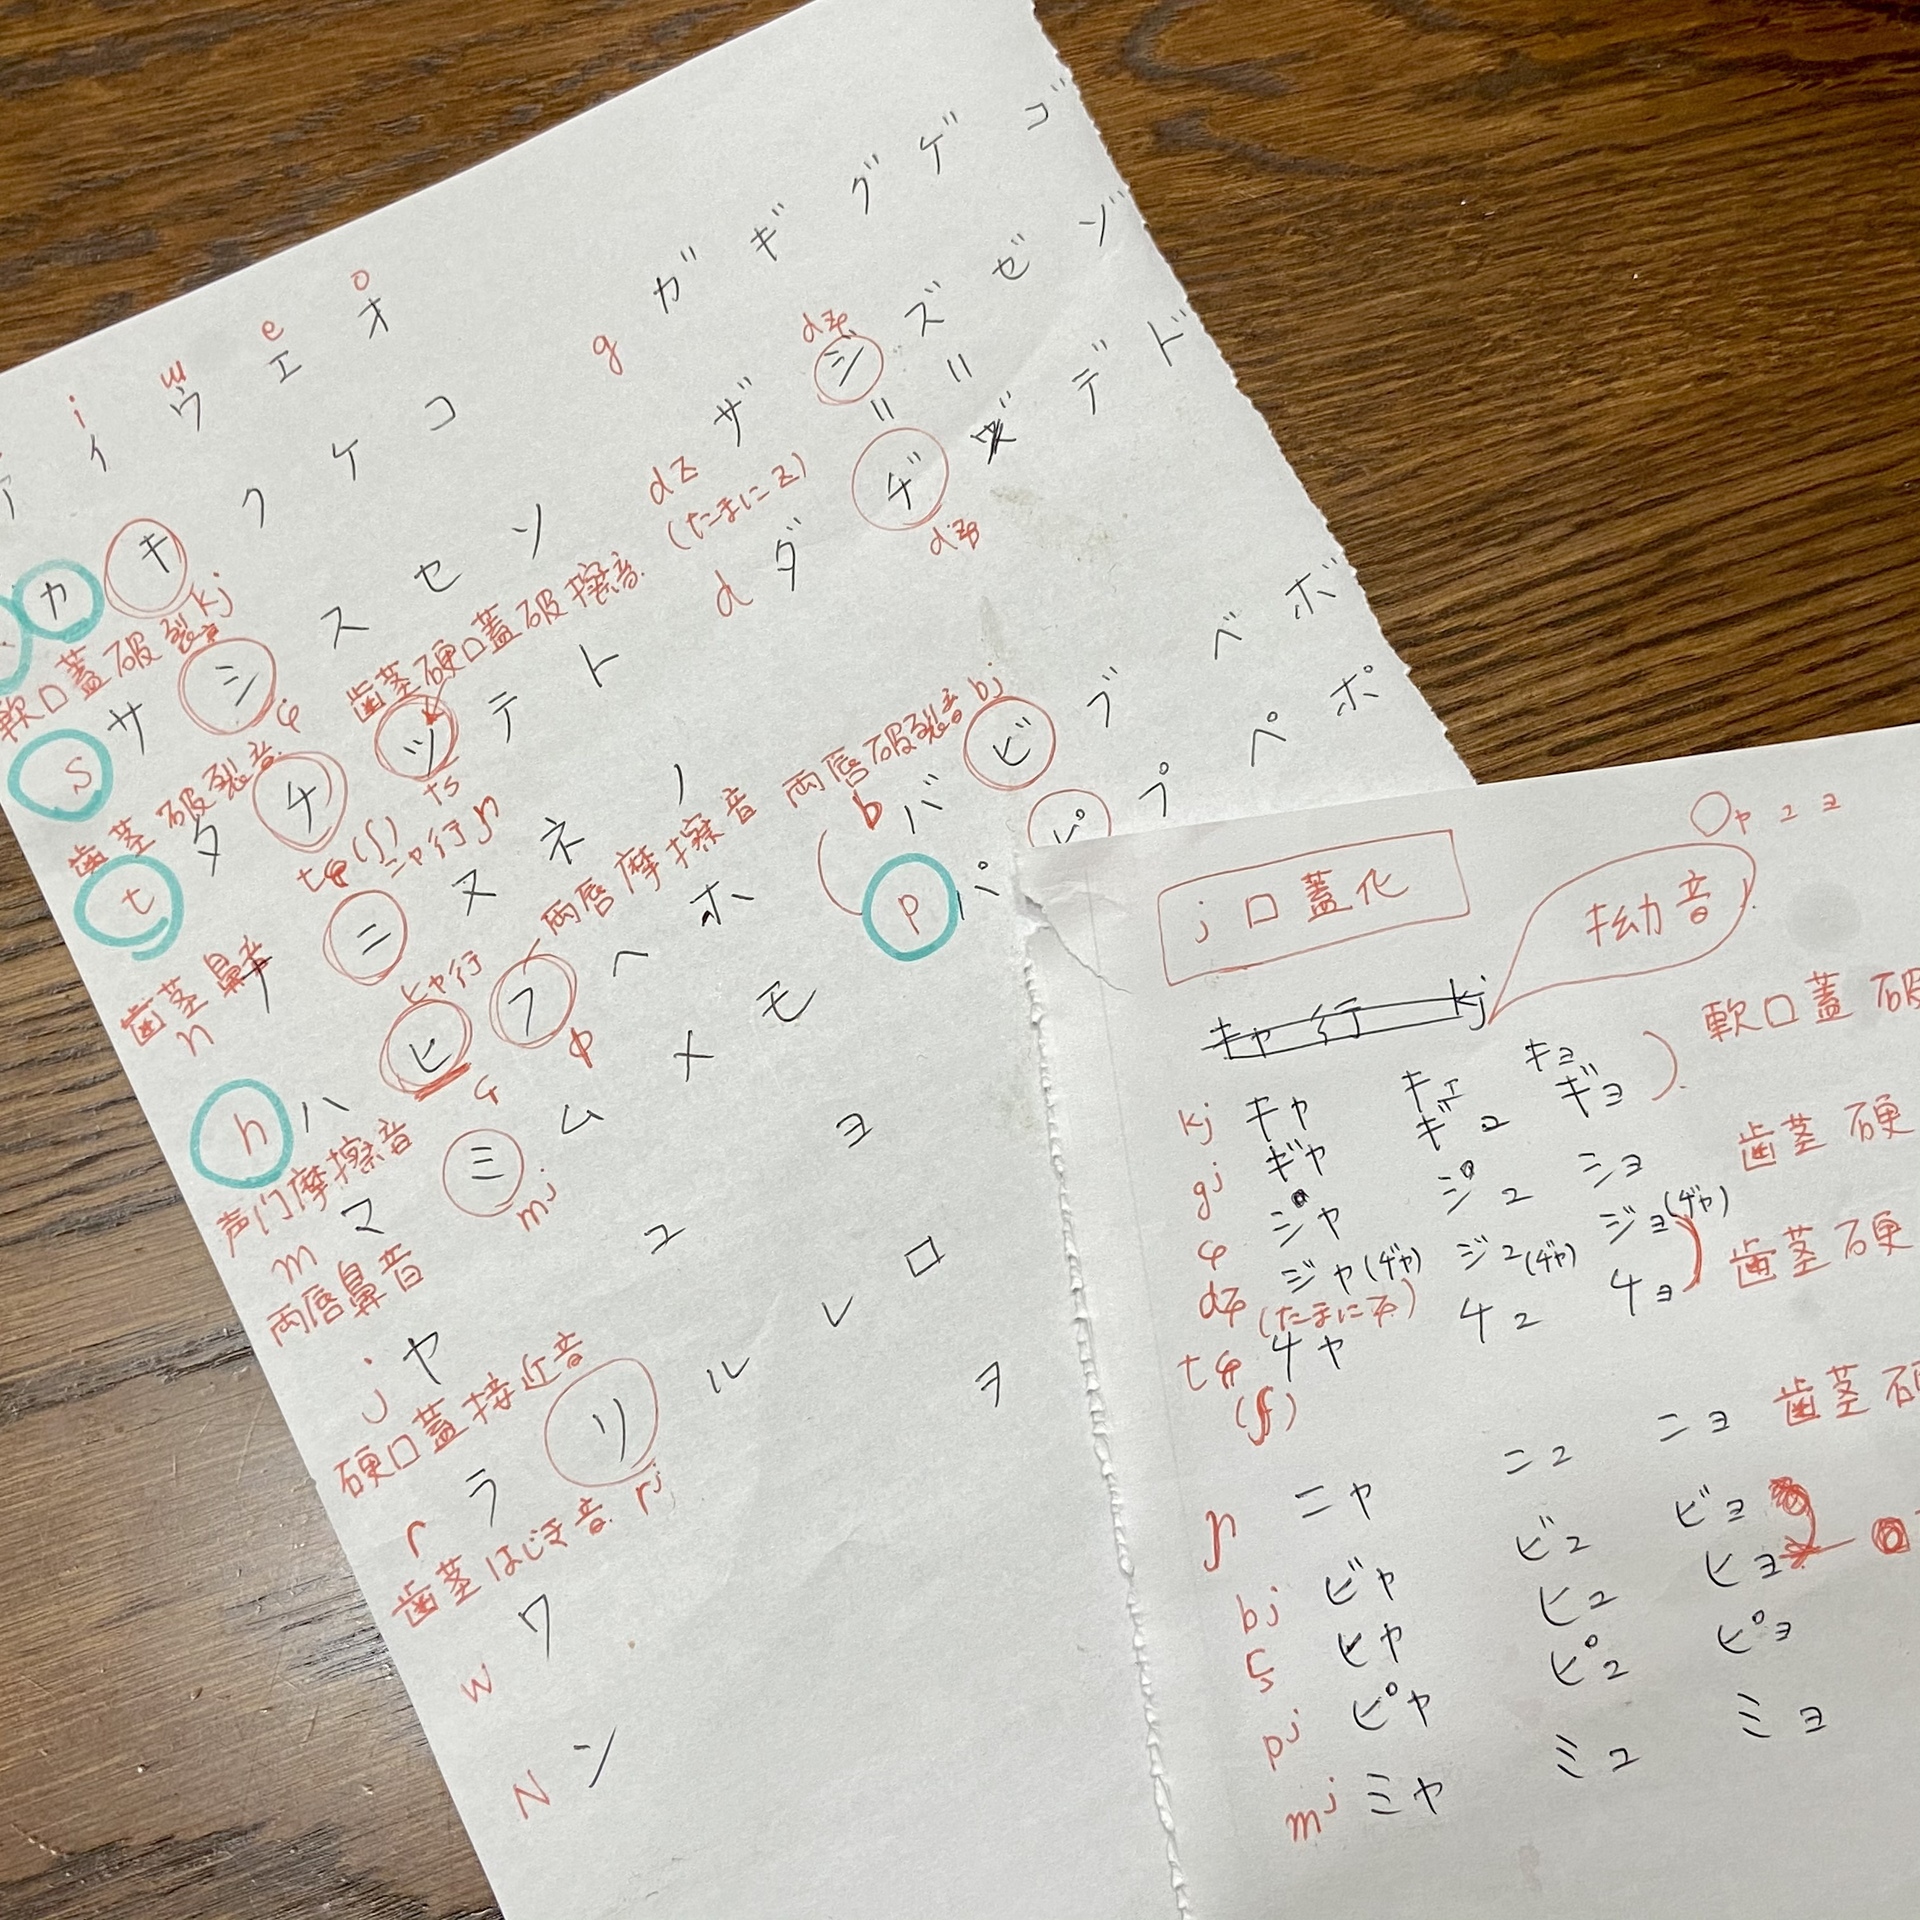 i ɯ e o
ア イ ウ エ オ
カ キ ク ケ コ
軟口蓋破裂音 kj
s サ シ ス セ ソ
歯茎破裂音 ɕ
歯茎硬口蓋破擦音
t タ チ ツ テ ト
tɕ(ʃ) ts
ニャ行 ɲ
ナ ニ ヌ ネ ノ
歯茎鼻音
n
ヒャ行
両唇摩擦音
h ハ ヒ フ ヘ ホ
ɸ
声门摩擦音
m マ ミ ム メ モ
mj
両唇鼻音
j ヤ ユ ヨ
硬口蓋接近音
r ラ リ ル レ ロ
歯茎はじき音 rj
w ワ ヲ
N ン
g ガ ギ グ ゲ ゴ
dʑ
dz ザ ジ ズ ゼ ゾ
(たまに z)
〃 〃
d ダ ヂ ヅ デ ド
dʑ
両唇破裂音 bj
b バ ビ ブ ベ ボ
p パ ピ プ ペ ポ
j 口蓋化
〇ャュョ
拗音
キャ行 kj
kj キャ キュ キョ
軟口蓋破
gj ギャ ギュ ギョ
ɕ シャ シュ ショ
歯茎硬
dʑ ジャ(ヂャ) ジュ(ヂャ) ジョ(ヂャ)
(たまに ʑ)
tɕ チャ チュ チョ
歯茎硬
(ʃ)
ɲ ニャ ニュ ニョ
歯茎硬
bj ビャ ビュ ビョ
ç ヒャ ヒュ ヒョ
pj ピャ ピュ ピョ
mj ミャ ミュ ミョ